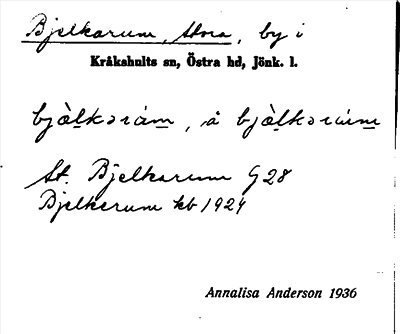 Bjelkarum, Stora, by i
Kråkshults sn, Östra hd, Jönk. l.
bjæ̀lkərúm, å bjæ̀lkərúm
St. Bjelkarum G28
Bjelkerum kb 1924
Annalisa Anderson 1936